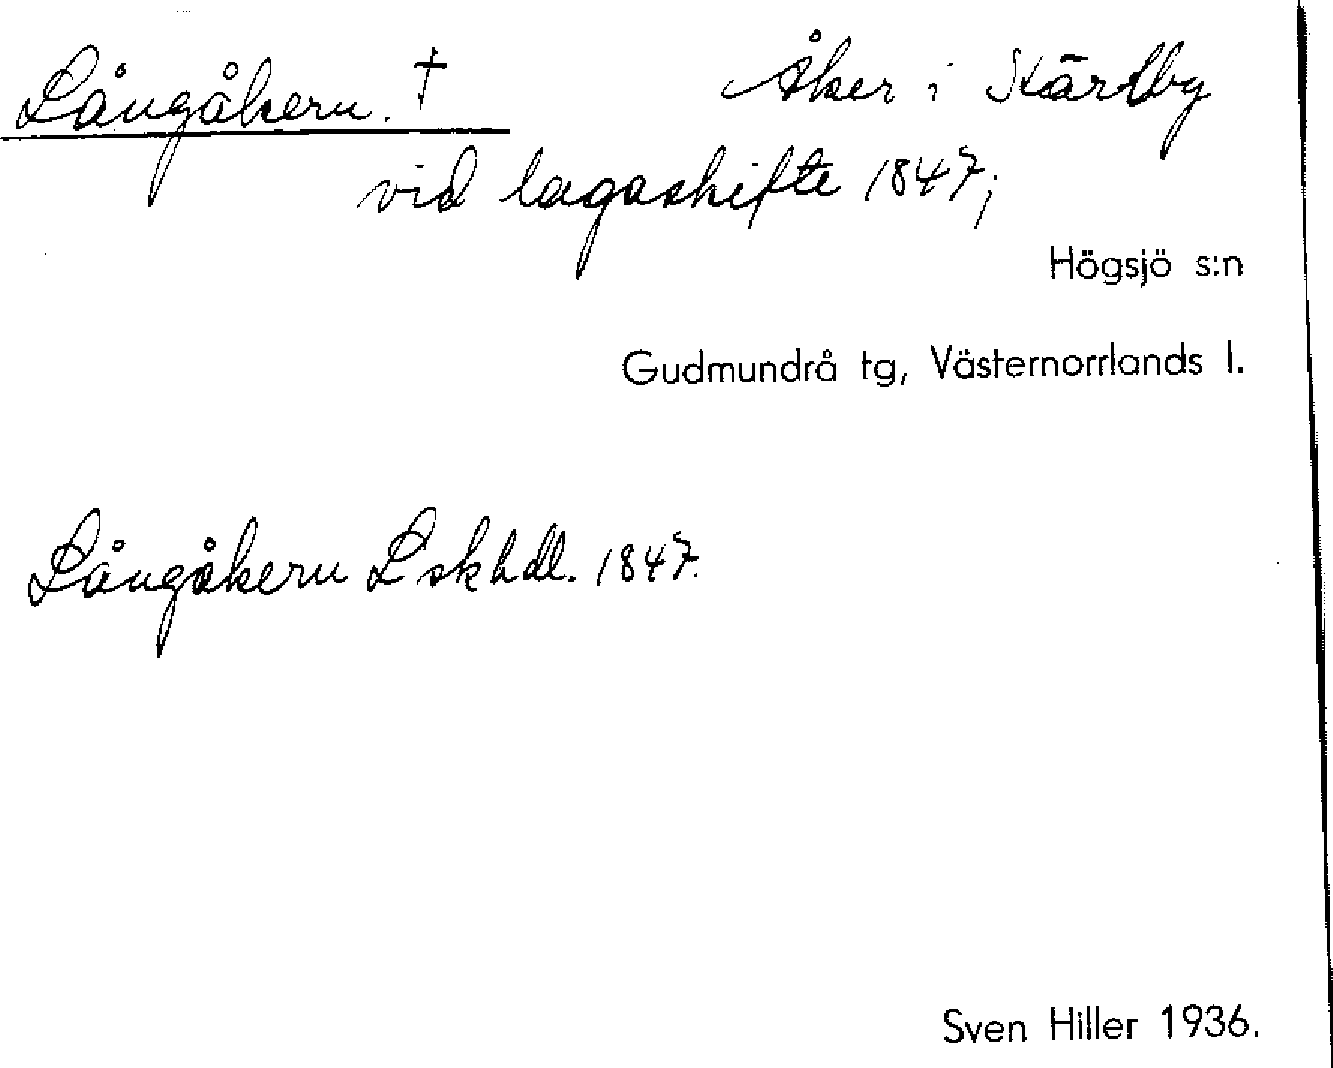 Långåkern. † Åker i Skärlby
vid lagaskifte 1847;
Högsjö s:n
Gudmundrå tg, Västernorrlands l.
Långåkern Lskhdl. 1847.
Sven Hiller 1936.